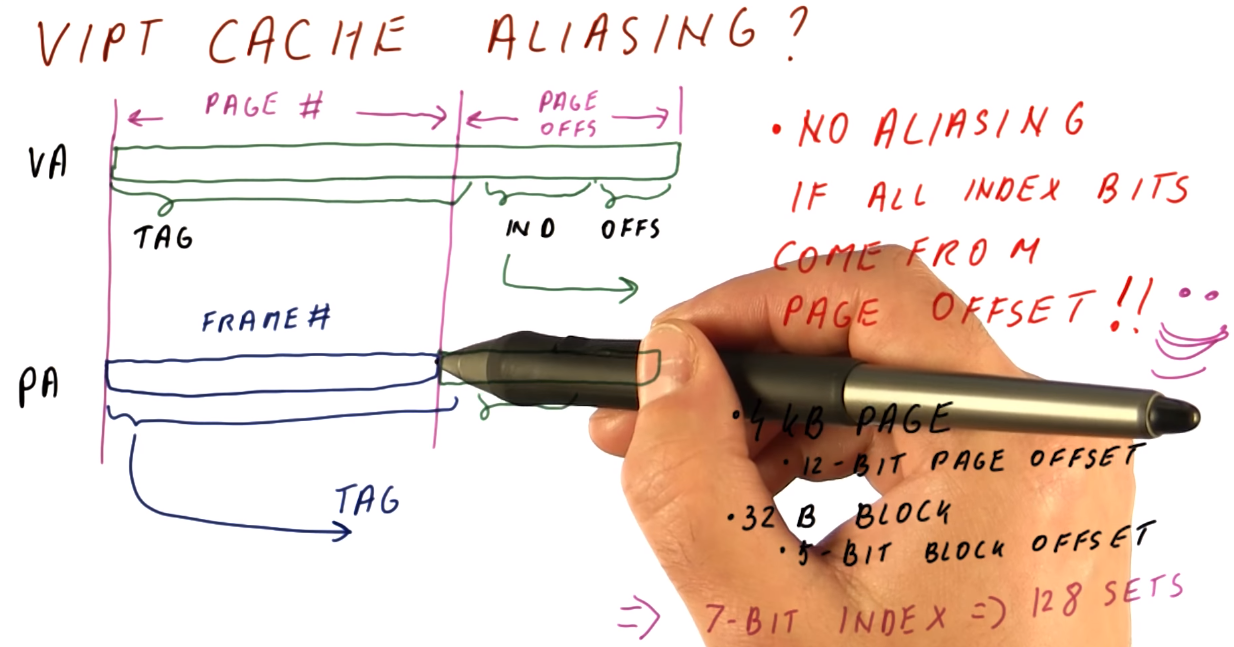 VIPT CACHE ALIASING?
PAGE #
PAGE
OFFS
VA
TAG
IND
OFFS
FRAME #
PA
TAG
• NO ALIASING
IF ALL INDEX BITS
COME FROM
PAGE OFFSET!!
• 4 kB PAGE
• 12-BIT PAGE OFFSET
• 32 B BLOCK
• 5-BIT BLOCK OFFSET
=> 7-BIT INDEX => 128 SETS